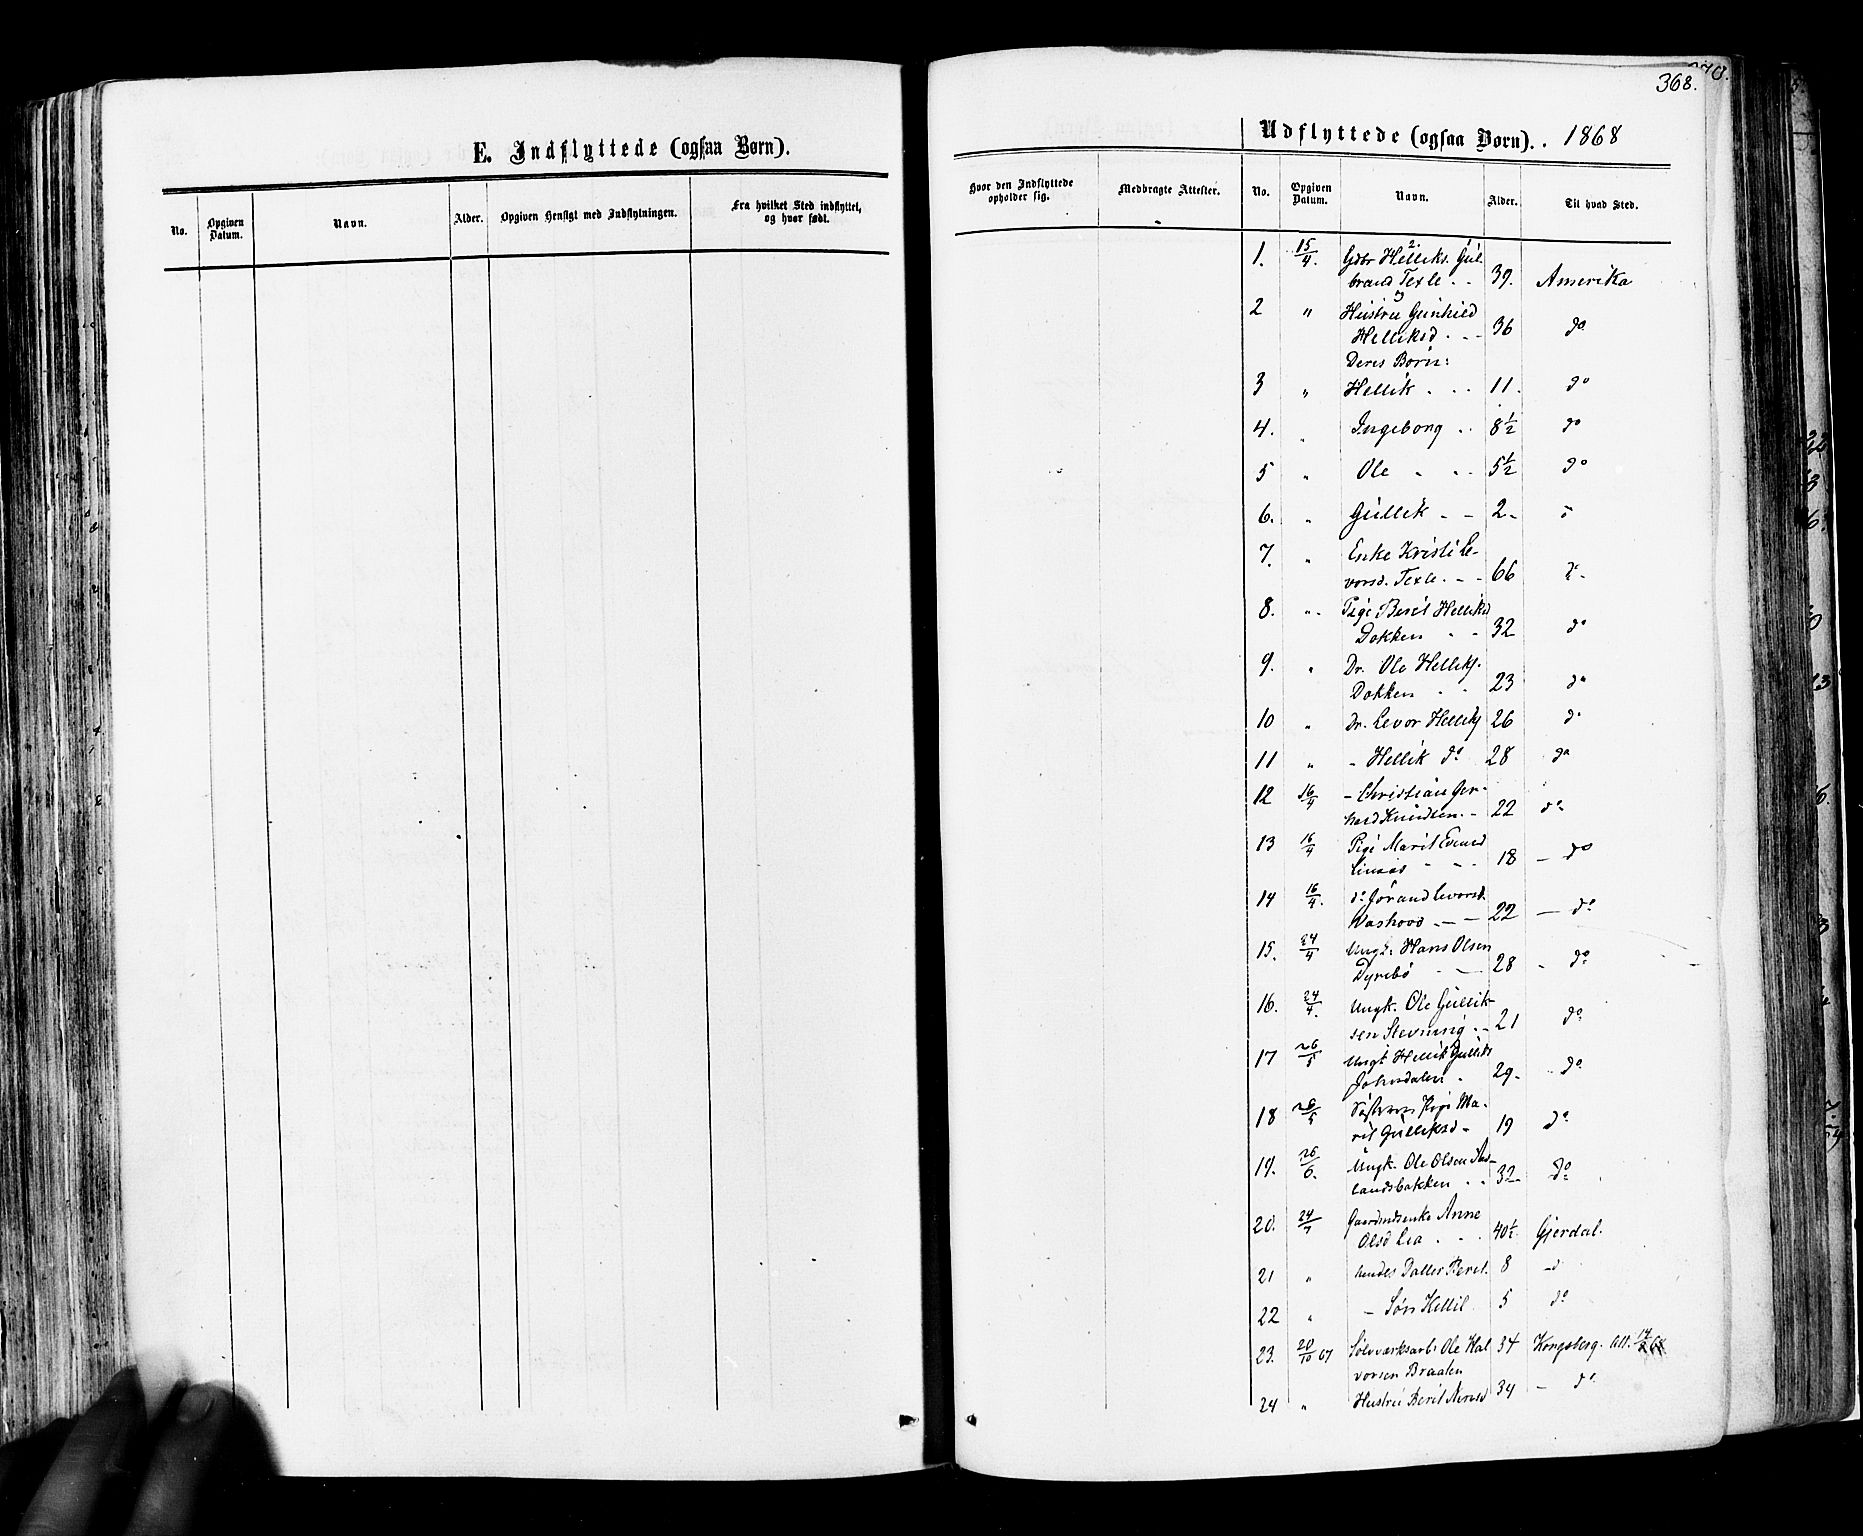 368.
E. Indflyttede (ogsaa Børn).
No.
Opgiven Datum.
Navn.
Alder.
Opgiven Hensigt med Indflytningen.
Fra hvilket Sted indflyttet, og hvor født.
Udflyttede (ogsaa Børn). . 1868
Hvor den Indflyttede opholder sig.
Medbragte Attester.
No.
Opgiven Datum.
Navn.
Alder.
Til hvad Sted.
1. 15/4. Gdbr Helliks. Gul-
brand Texle . . 39. Amerika
2 " Hustru Gunhild
Helliksd . . - 36 do
Deres Børn:
3 " Hellik . . . 11. do
4. " Ingeborg . . 8 1/2 do
5 " Ole . . . 5 1/2 do
6. " Gullik - - 2-
7. " Enke Kristi Le-
vorsd. Texle. - - 66 do
8. " Pige Berit Helliksd
Dokken . . 32 do
9. " Dr. Ole Helliks.
Dokken . . 23 do
10 " Dr. Levor Helliks 26 do
11 " - Hellik do 28 do
12 16/4 - Christian Ger-
hard Knudsen. - 22 do
13 16/4 Pige Marit
18 - do
14 16/4. do Jørand Levorsd.
22 - do
15. 24/4 Ungk. Hans Olsen
Dyrebø - - 28 - do
16. 24/4. Ungk. Ole Gullik-
sen Stevning . - 21 do
17 26/5 Ungk Hellik Gulliks
Johnsdalen . 29- do
18 26/5 Pige Ma-
rit Gulliksd - 19 do
19. 26/6. Ungk. Ole Olsen
landsbakken . . 32- do
20. 24/7 Anne
Olsd Lia . . . 40 1/2 Gjerdal.
21 " hendes Datter Berit. 8 - d
22 " - Søn Kettil 5 do
23. 20/10 67 Sølvværksarb. Ole Hal 34 Kongsberg. Att.
vorsen Braaten
24 " Hustru Berit 34 - do